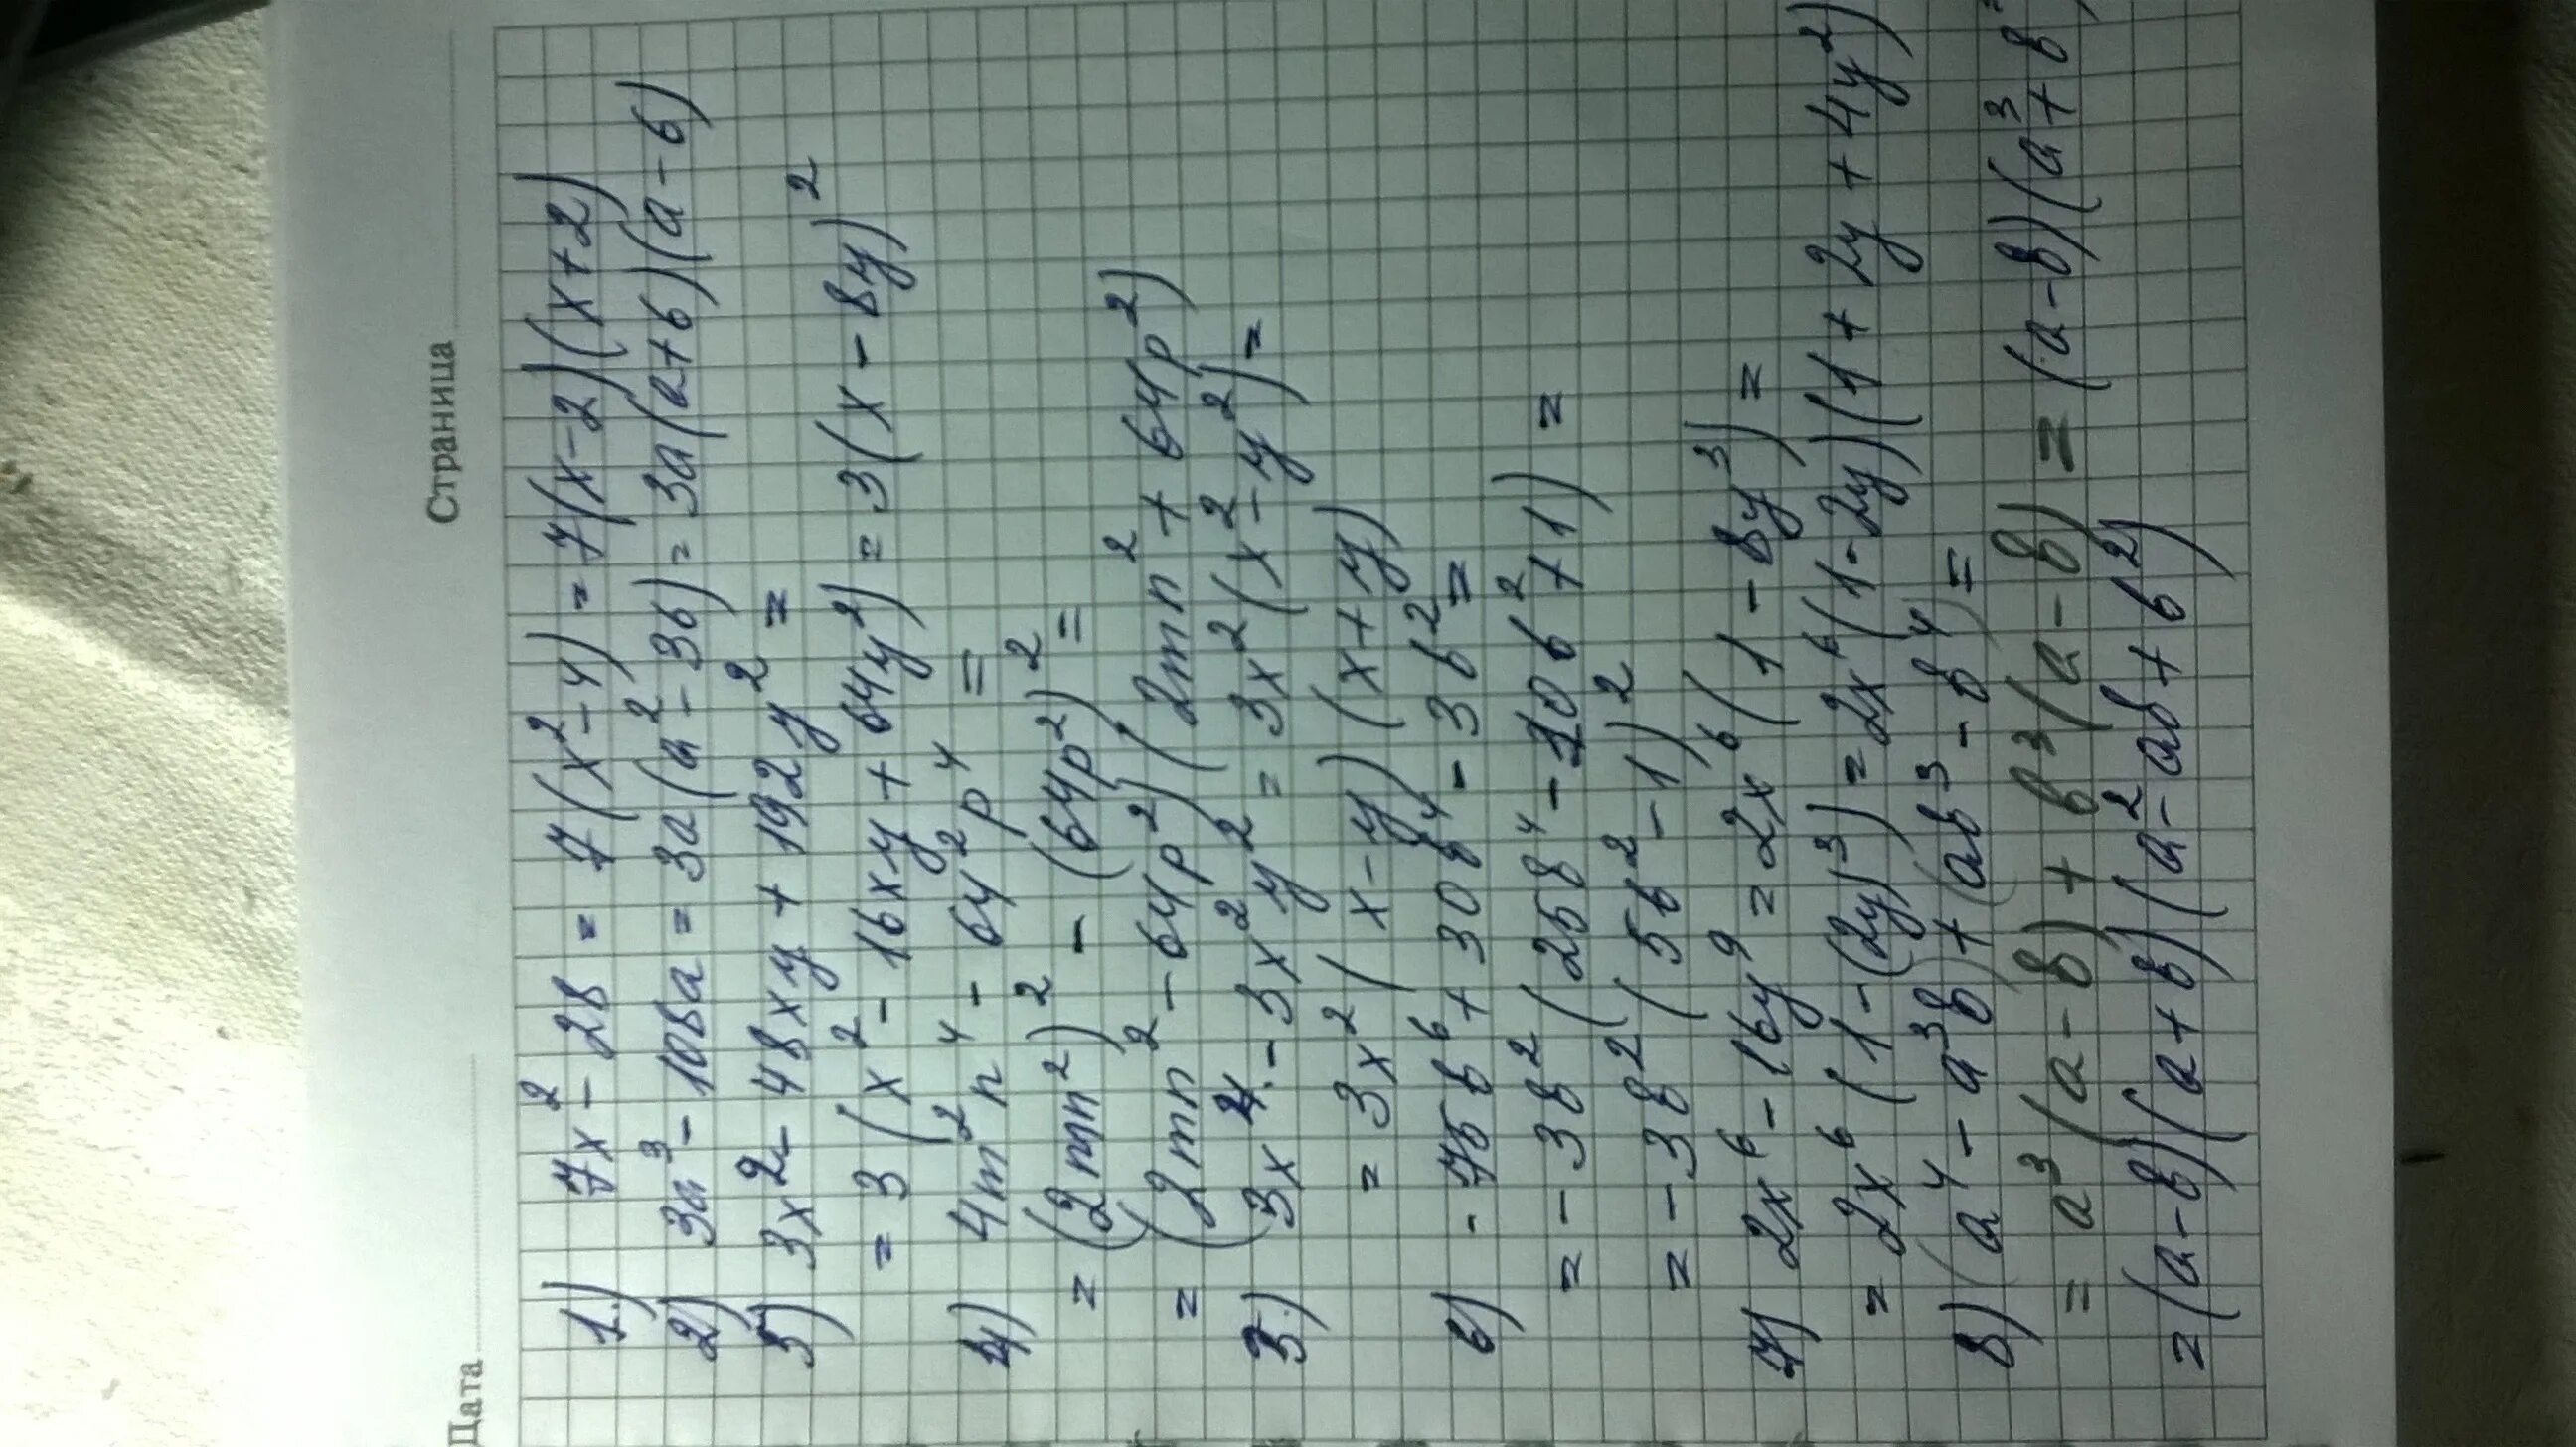 Дата Страница
1.) 7x² - 28 = 7(x² - 4) = 7(x-2)(x+2)
2) 3a³ - 108a = 3a(a² - 36) = 3a(a+6)(a-6)
3) 3x² - 48xy + 192y² =
= 3(x² - 16xy + 64y²) = 3(x - 8y)²
4) 4m²n⁴ - 64²p⁴ =
= (2mn²)² - (64p²)² =
= (2mn² - 64p²)(2mn² + 64p²)
5.) 3x⁴ - 3x²y² = 3x²(x² - y²) =
= 3x²(x-y)(x+y)
6) -75b⁶ + 30b⁴ - 3b² =
= -3b²(25b⁴ - 10b² + 1) =
= -3b²(5b² - 1)²
7) 2x⁶ - 16y⁹ = 2x⁶(1 - 8y³) =
= 2x⁶(1 - (2y)³) = 2x⁶(1-2y)(1 + 2y + 4y²)
8) (a⁴ - a³b) + (ab³ - b⁴) =
= a³(a - b) + b³(a - b) = (a-b)(a³ + b³
= (a-b)(a+b)(a² - ab + b²)